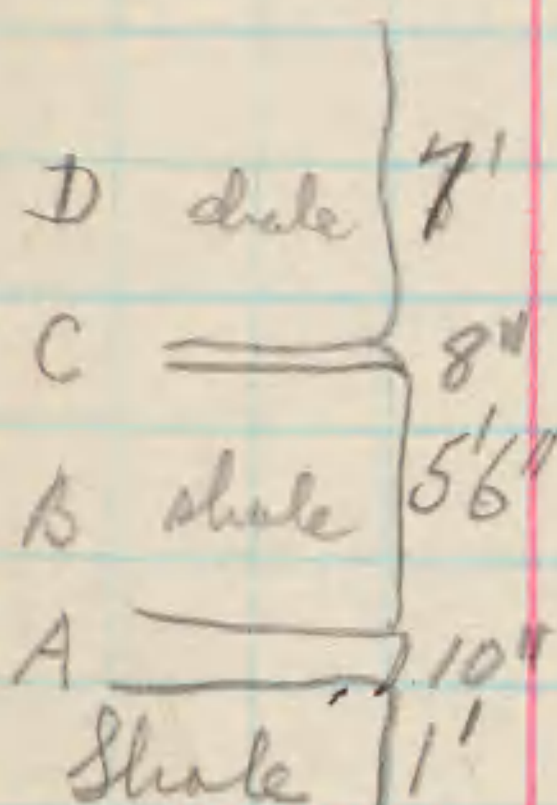 D shale 7'
C 8"
B shale 5'6"
A 10"
Shale 1'